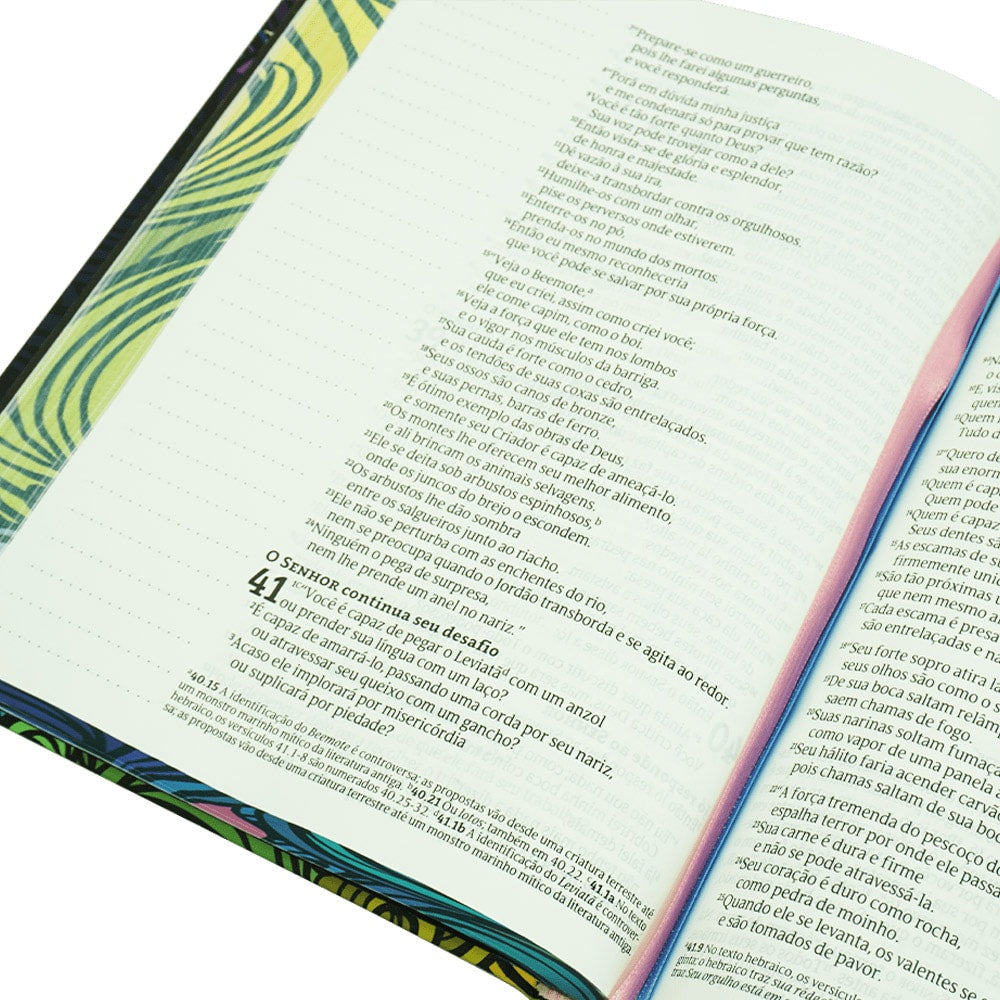 ⁷“Prepare-se como um guerreiro,
pois lhe farei algumas perguntas,
e você responderá.
⁸“Porá em dúvida minha justiça
e me condenará só para provar que tem razão?
⁹Você é tão forte quanto Deus?
Sua voz pode trovejar como a dele?
¹⁰Então vista-se de glória e esplendor,
de honra e majestade.
¹¹Dê vazão à sua ira,
deixe-a transbordar contra os orgulhosos.
¹²Humilhe-os com um olhar,
pise os perversos onde estiverem.
¹³Enterre-os no pó,
prenda-os no mundo dos mortos.
¹⁴Então eu mesmo reconheceria
que você pode se salvar por sua própria força.
¹⁵“Veja o Beemote,ᵃ
que eu criei, assim como criei você;
ele come capim, como o boi.
¹⁶Veja a força que ele tem nos lombos
e o vigor nos músculos da barriga.
¹⁷Sua cauda é forte como o cedro,
e os tendões de suas coxas são entrelaçados.
¹⁸Seus ossos são canos de bronze,
e suas pernas, barras de ferro.
¹⁹É ótimo exemplo das obras de Deus,
e somente seu Criador é capaz de ameaçá-lo.
²⁰Os montes lhe oferecem seu melhor alimento,
e ali brincam os animais selvagens.
²¹Ele se deita sob arbustos espinhosos,ᵇ
onde os juncos do brejo o escondem.
²²Os arbustos lhe dão sombra
entre os salgueiros junto ao riacho.
²³Ele não se perturba com as enchentes do rio,
nem se preocupa quando o Jordão transborda e se agita ao redor.
²⁴Ninguém o pega de surpresa,
nem lhe prende um anel no nariz.”
O SENHOR continua seu desafio
41 ¹ᶜ“Você é capaz de pegar o Leviatãᵈ com um anzol
ou prender sua língua com um laço?
²É capaz de amarrá-lo, passando uma corda por seu nariz,
ou atravessar seu queixo com um gancho?
³Acaso ele implorará por misericórdia
ou suplicará por piedade?
ᵃ40.15 A identificação do Beemote é controversa; as propostas vão desde uma criatura terrestre até
um monstro marinho mítico da literatura antiga. ᵇ40.21 Ou lotos; também em 40.22. ᶜ41.1a No texto
hebraico, os versículos 41.1-8 são numerados 40.25-32. ᵈ41.1b A identificação do Leviatã é controver-
sa; as propostas vão desde uma criatura terrestre até um monstro marinho mítico da literatura antiga.
quem
¹¹Quem
Tudo d
¹²“Quero de
sua enorm
¹³Quem é capa
Quem pode
¹⁴Quem é capaz
Seus dentes sã
¹⁵As escamas de s
firmemente unid
¹⁶São tão próximas
que nem mesmo a
¹⁷Cada escama é presa
são entrelaçadas e n
¹⁸“Seu forte sopro atira l
seus olhos são como o s
¹⁹De sua boca saltam relâm
saem chamas de fogo.
²⁰Suas narinas soltam fumaça
como vapor de uma panela
²¹Seu hálito faria acender carvã
pois chamas saltam de sua boc
²²“A força tremenda do pescoço d
espalha terror por onde ele passa
²³Sua carne é dura e firme
e não se pode atravessá-la.
²⁴Seu coração é duro como rocha,
como pedra de moinho.
²⁵Quando ele se levanta, os valentes se
e são tomados de pavor.
ᵃ41.9 No texto hebraico, os versícul
traz Seu orgulho está em